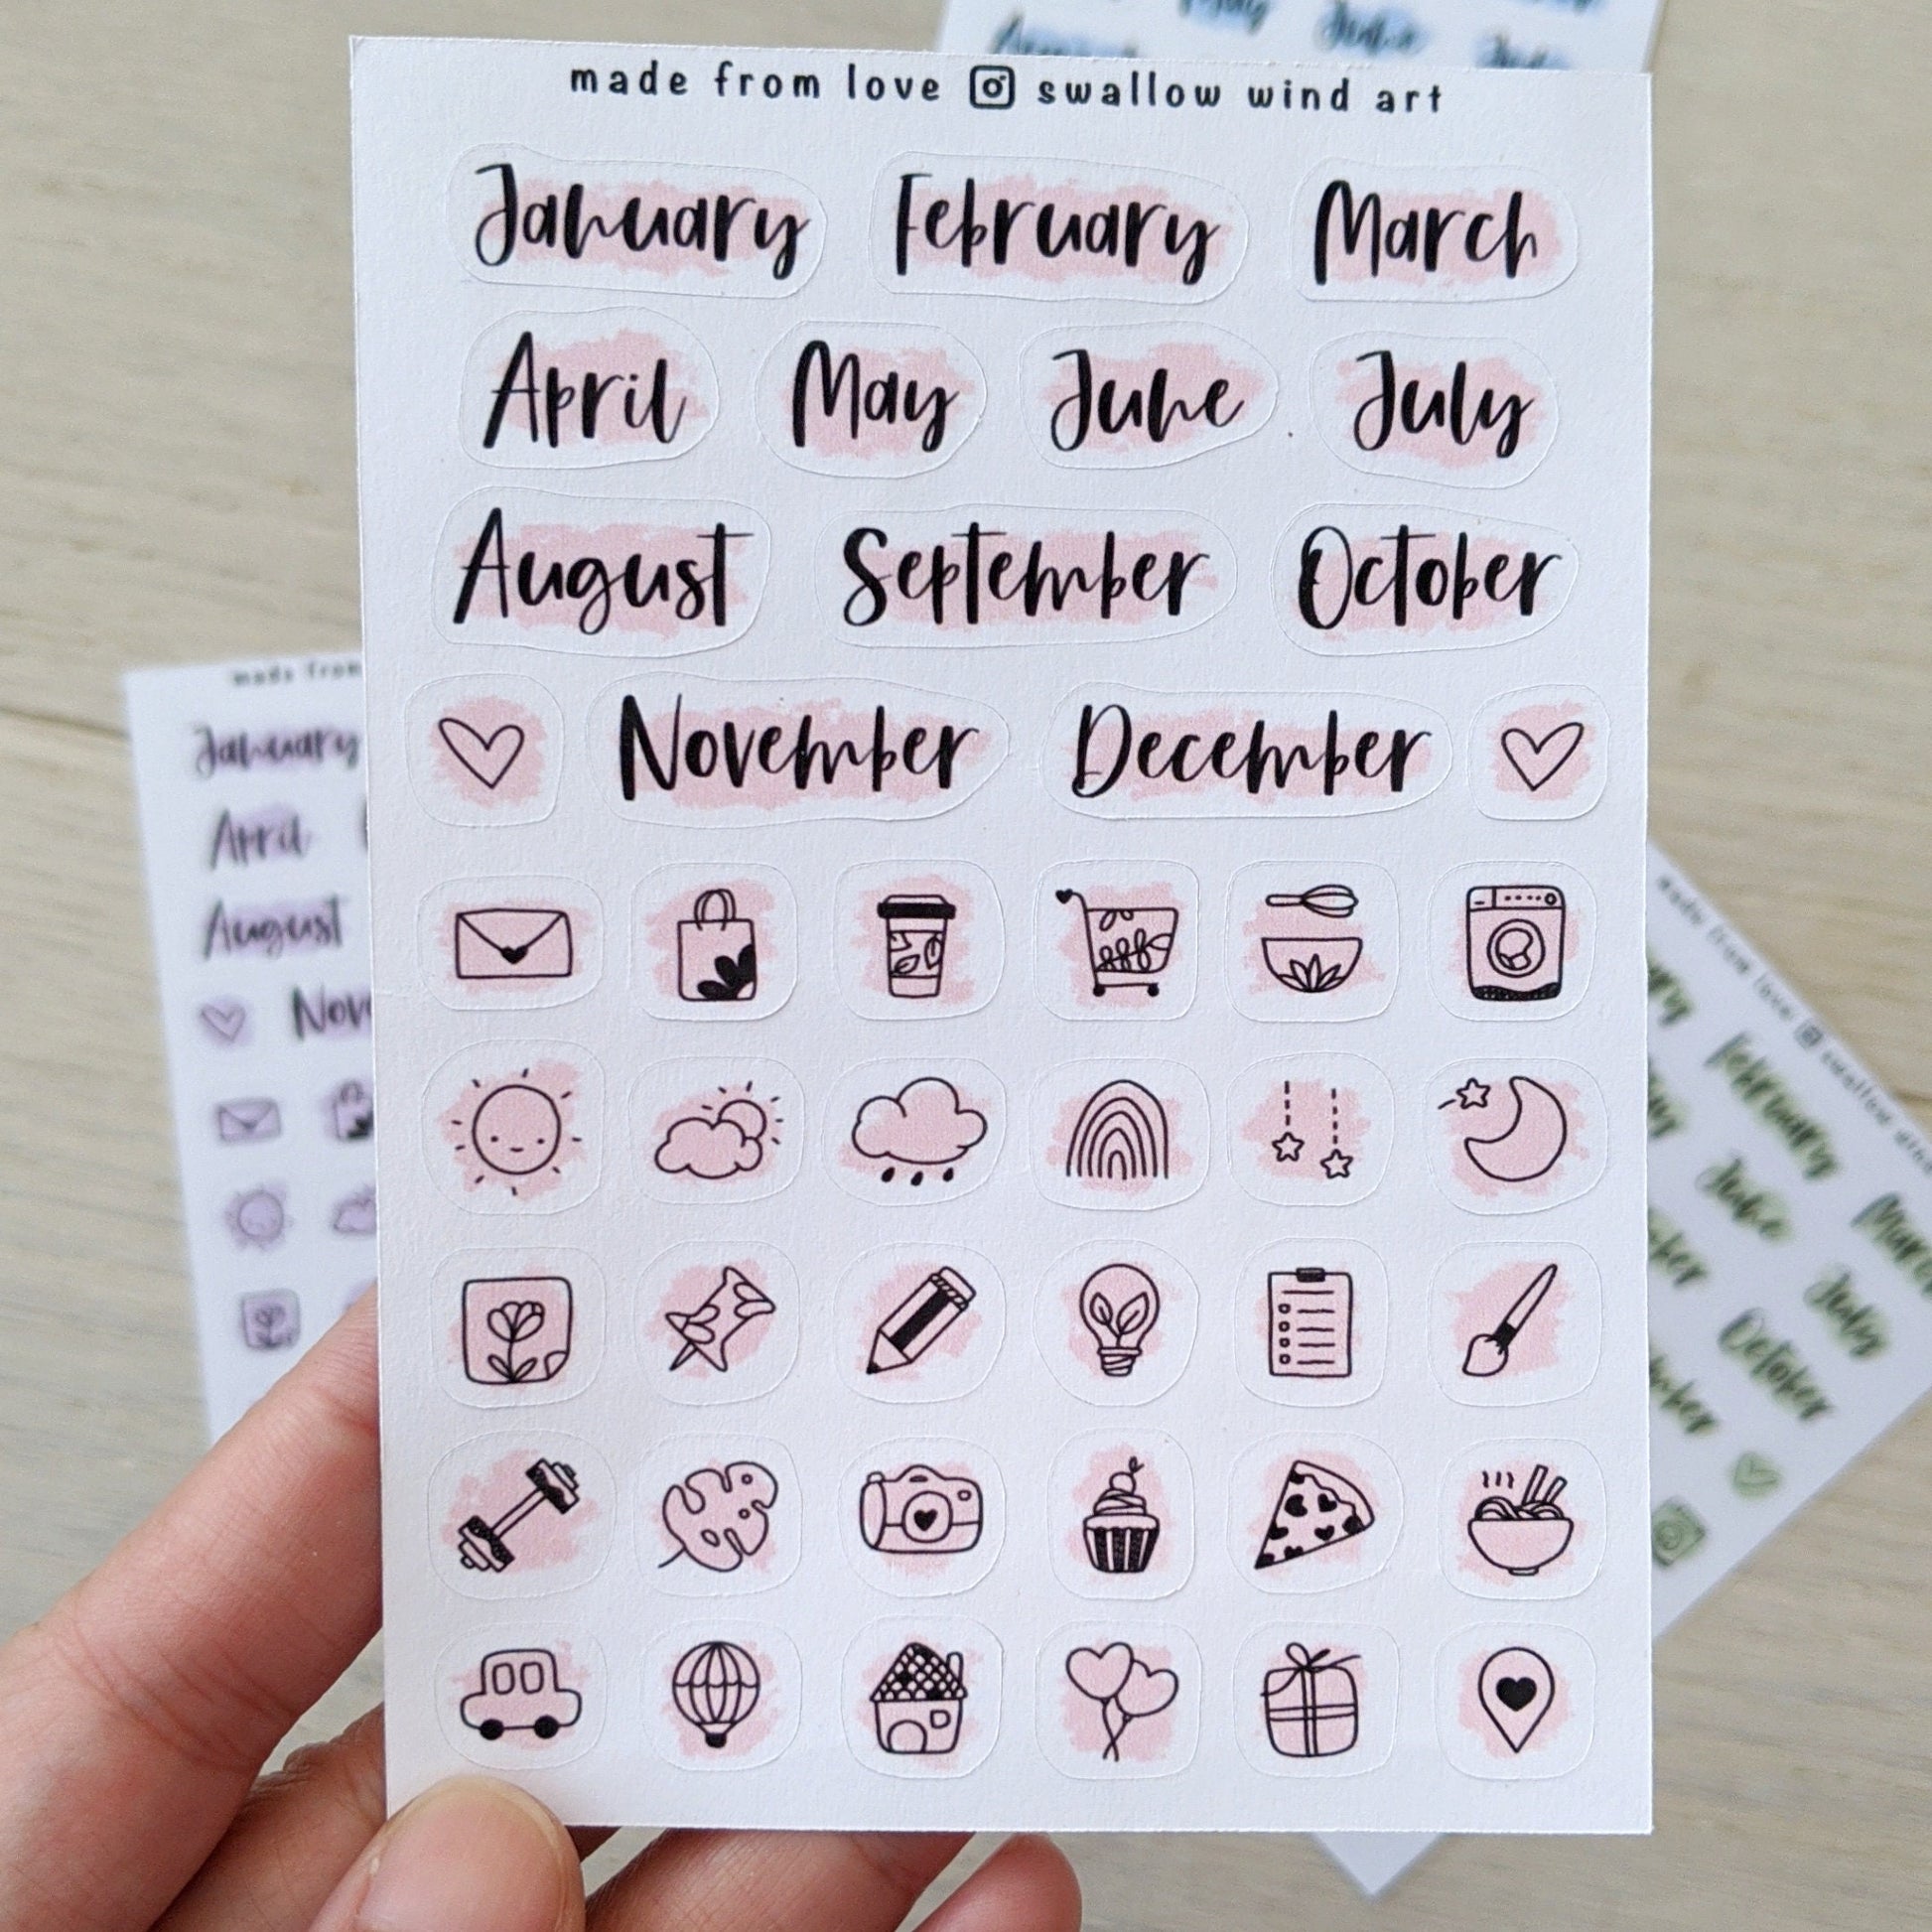 made from love swallow wind art
January February March
April May June July
August September October
November December
made from
January
April
August
Nov
made from love swallow wind
February
March
June
July
October